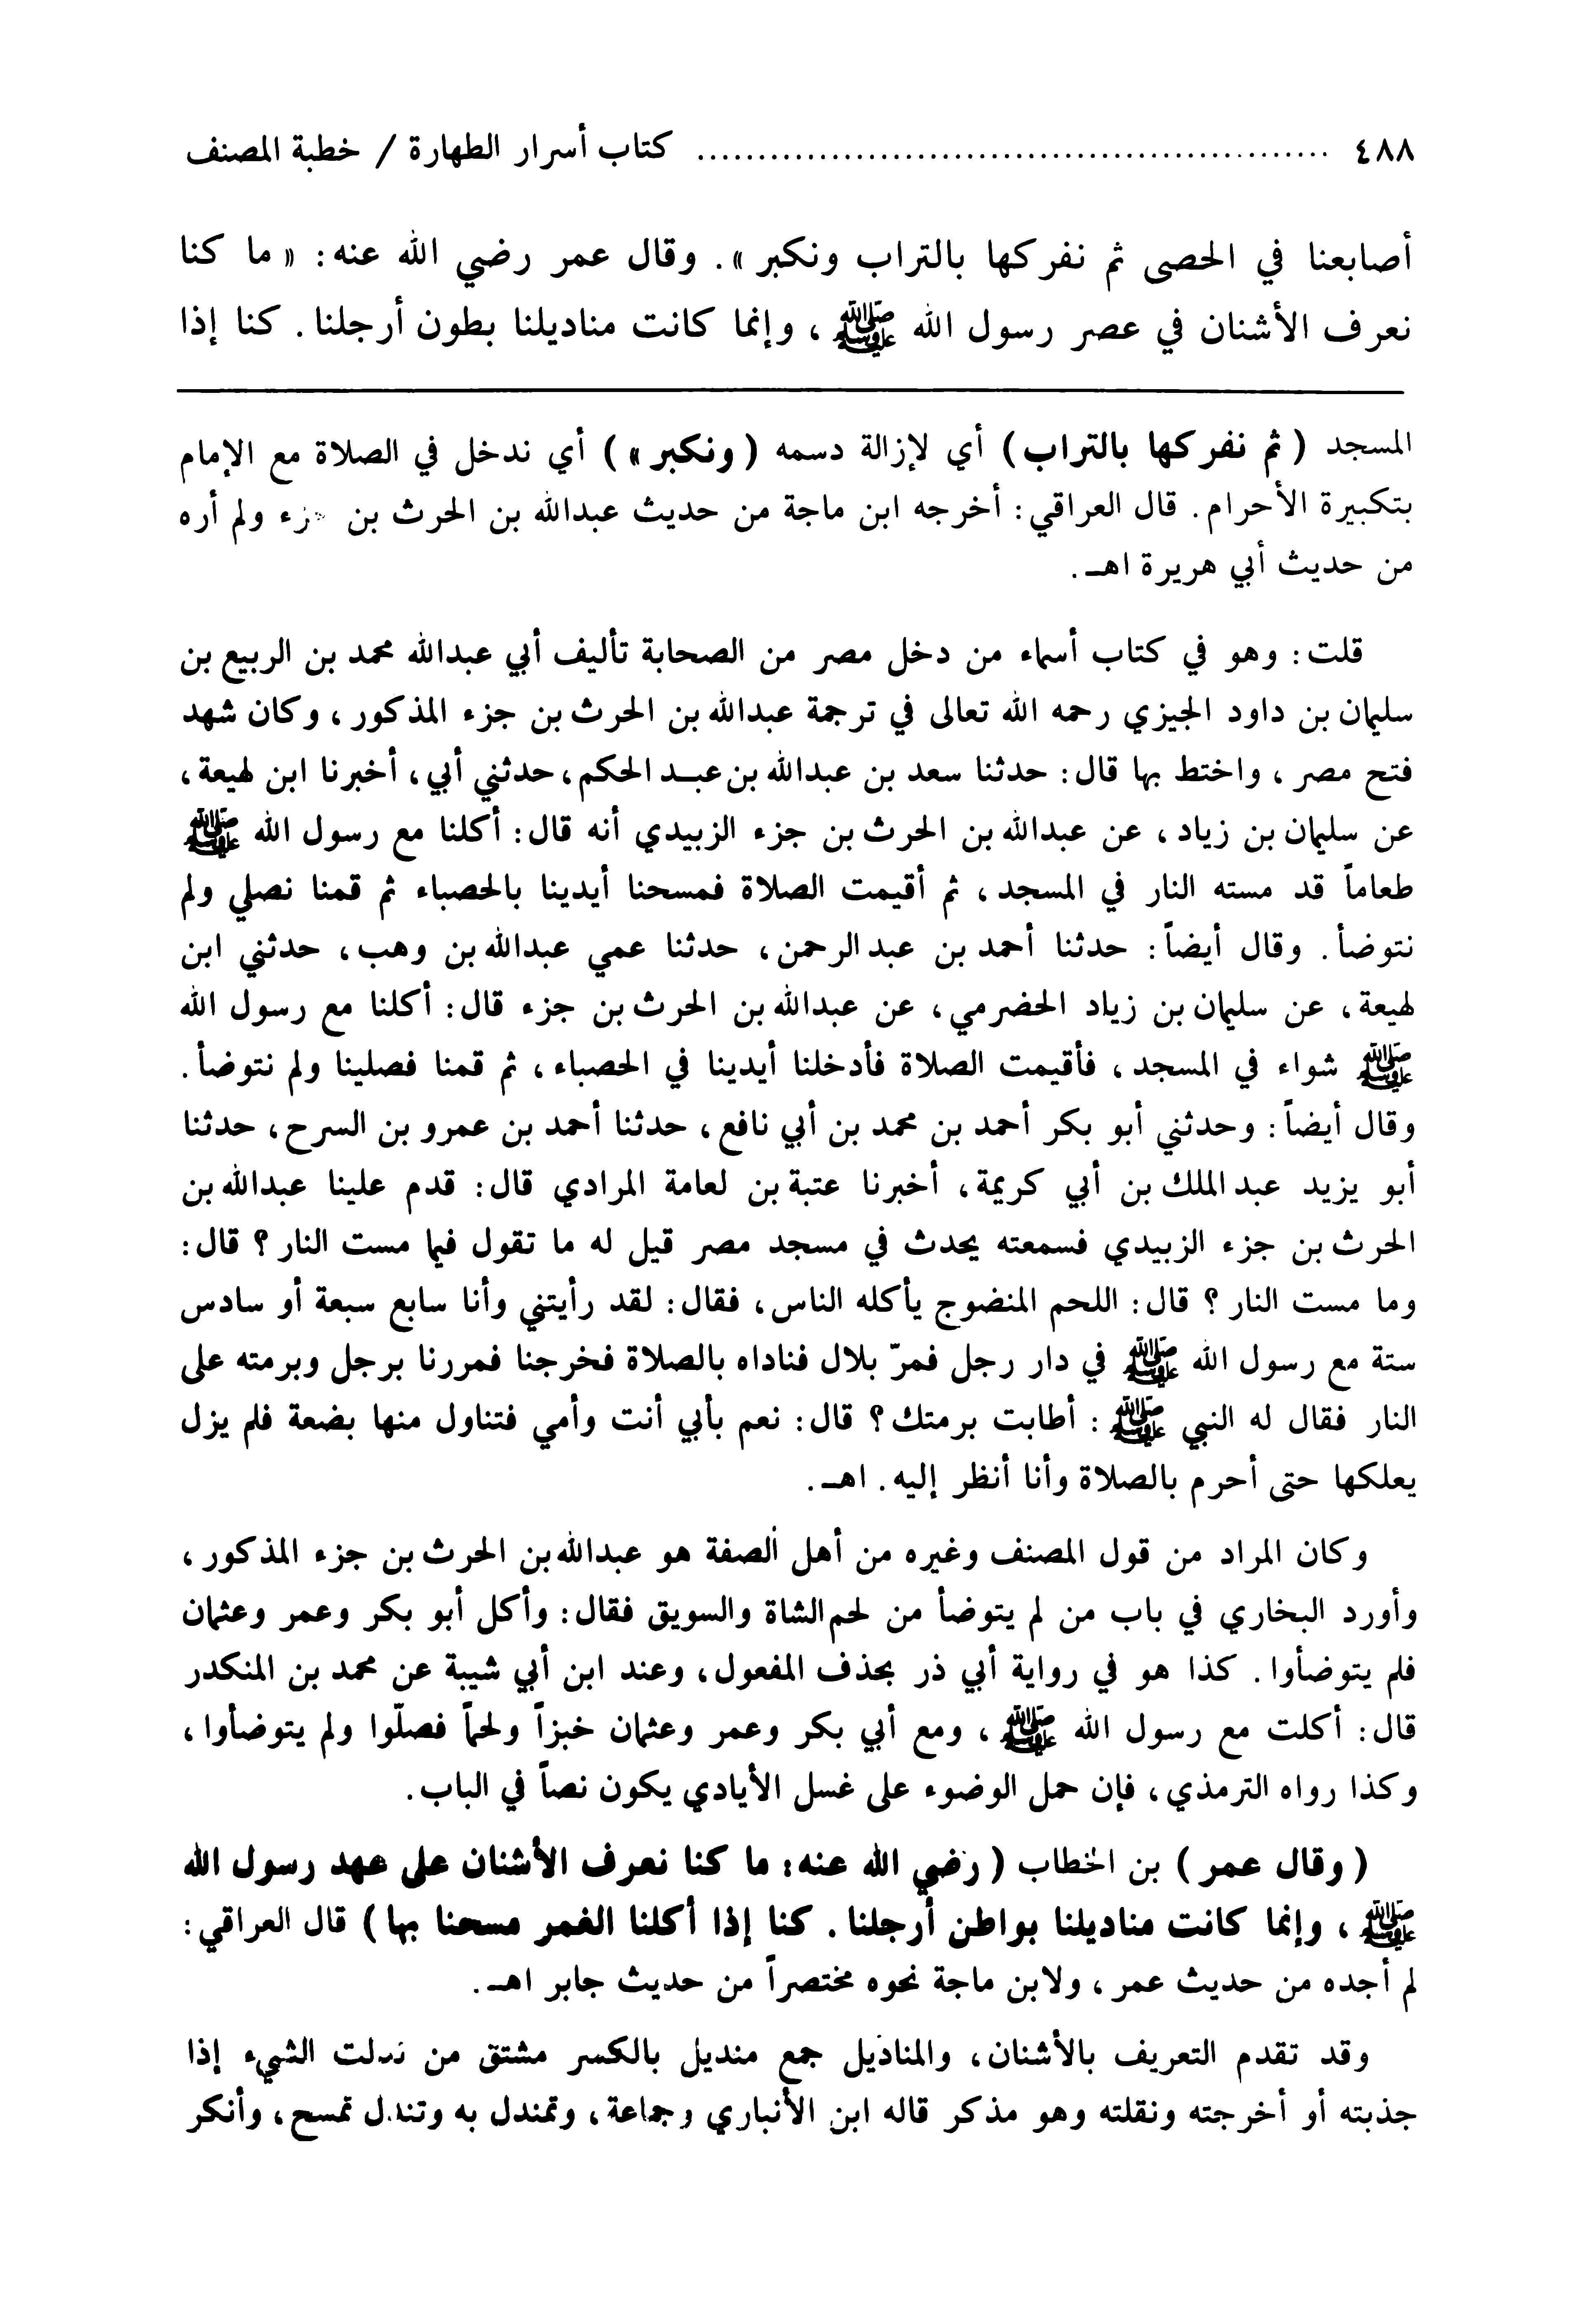 ٤٨٨ ................................................ كتاب أسرار الطهارة / خطبة المصنف
أصابعنا في الحصى ثم نفركها بالتراب ونكبر ». وقال عمر رضي الله عنه: « ما كنا
نعرف الأشنان في عصر رسول الله ﷺ ، وإنما كانت مناديلنا بطون أرجلنا . كنا إذا
المسجد ( ثم نفركها بالتراب ) أي لإزالة دسمه ( ونكبر » ) أي ندخل في الصلاة مع الإمام
بتكبيرة الأحرام. قال العراقي: أخرجه ابن ماجة من حديث عبدالله بن الحرث بن جزء ولم أره
من حديث أبي هريرة اهـ .
قلت: وهو في كتاب أسماء من دخل مصر من الصحابة تأليف أبي عبدالله محمد بن الربيع بن
سليمان بن داود الجيزي رحمه الله تعالى في ترجمة عبدالله بن الحرث بن جزء المذكور ، وكان شهد
فتح مصر ، واختط بها قال: حدثنا سعد بن عبدالله بن عبد الحكم، حدثني أبي، أخبرنا ابن لهيعة،
عن سليمان بن زياد ، عن عبدالله بن الحرث بن جزء الزبيدي أنه قال: أكلنا مع رسول الله ﷺ
طعاماً قد مسته النار في المسجد ، ثم أقيمت الصلاة فمسحنا أيدينا بالحصباء ثم قمنا نصلي ولم
نتوضأ . وقال أيضاً: حدثنا أحمد بن عبد الرحمن، حدثنا عمي عبدالله بن وهب، حدثني ابن
لهيعة، عن سليمان بن زياد الحضرمي، عن عبدالله بن الحرث بن جزء قال: أكلنا مع رسول الله
ﷺ شواء في المسجد ، فأقيمت الصلاة فأدخلنا أيدينا في الحصباء ، ثم قمنا فصلينا ولم نتوضأ .
وقال أيضاً: وحدثني أبو بكر أحمد بن محمد بن أبي نافع، حدثنا أحمد بن عمرو بن السرح، حدثنا
أبو يزيد عبد الملك بن أبي كريمة، أخبرنا عتبة بن لعامة المرادي قال: قدم علينا عبدالله بن
الحرث بن جزء الزبيدي فسمعته يحدث في مسجد مصر قيل له ما تقول فيما مست النار ؟ قال:
وما مست النار ؟ قال: اللحم المنضوج يأكله الناس، فقال: لقد رأيتني وأنا سابع سبعة أو سادس
ستة مع رسول الله ﷺ في دار رجل فمرّ بلال فناداه بالصلاة فخرجنا فمررنا برجل وبرمته على
النار فقال له النبي ﷺ : أطابت برمتك؟ قال: نعم بأبي أنت وأمي فتناول منها بضعة فلم يزل
يعلكها حتى أحرم بالصلاة وأنا أنظر إليه. اهـ .
وكان المراد من قول المصنف وغيره من أهل الصفة هو عبدالله بن الحرث بن جزء المذكور ،
وأورد البخاري في باب من لم يتوضأ من لحم الشاة والسويق فقال: وأكل أبو بكر وعمر وعثمان
فلم يتوضأوا . كذا هو في رواية أبي ذر بحذف المفعول، وعند ابن أبي شيبة عن محمد بن المنكدر
قال: أكلت مع رسول الله ﷺ ، ومع أبي بكر وعمر وعثمان خبزاً ولحماً فصلّوا ولم يتوضأوا ،
وكذا رواه الترمذي، فإن حمل الوضوء على غسل الأيادي يكون نصاً في الباب.
( وقال عمر ) بن الخطاب ( رضي الله عنه: ما كنا نعرف الأشنان على عهد رسول الله
ﷺ ، وإنما كانت مناديلنا بواطن أرجلنا . كنا إذا أكلنا الغمر مسحنا بها ) قال العراقي:
لم أجده من حديث عمر ، ولابن ماجة نحوه مختصراً من حديث جابر اهـ .
وقد تقدم التعريف بالأشنان، والمناديل جمع منديل بالكسر مشتق من ندلت الشيء إذا
جذبته أو أخرجته ونقلته وهو مذكر قاله ابن الأنباري وجماعة، وتمندل به وتندل تمسح، وأنكر